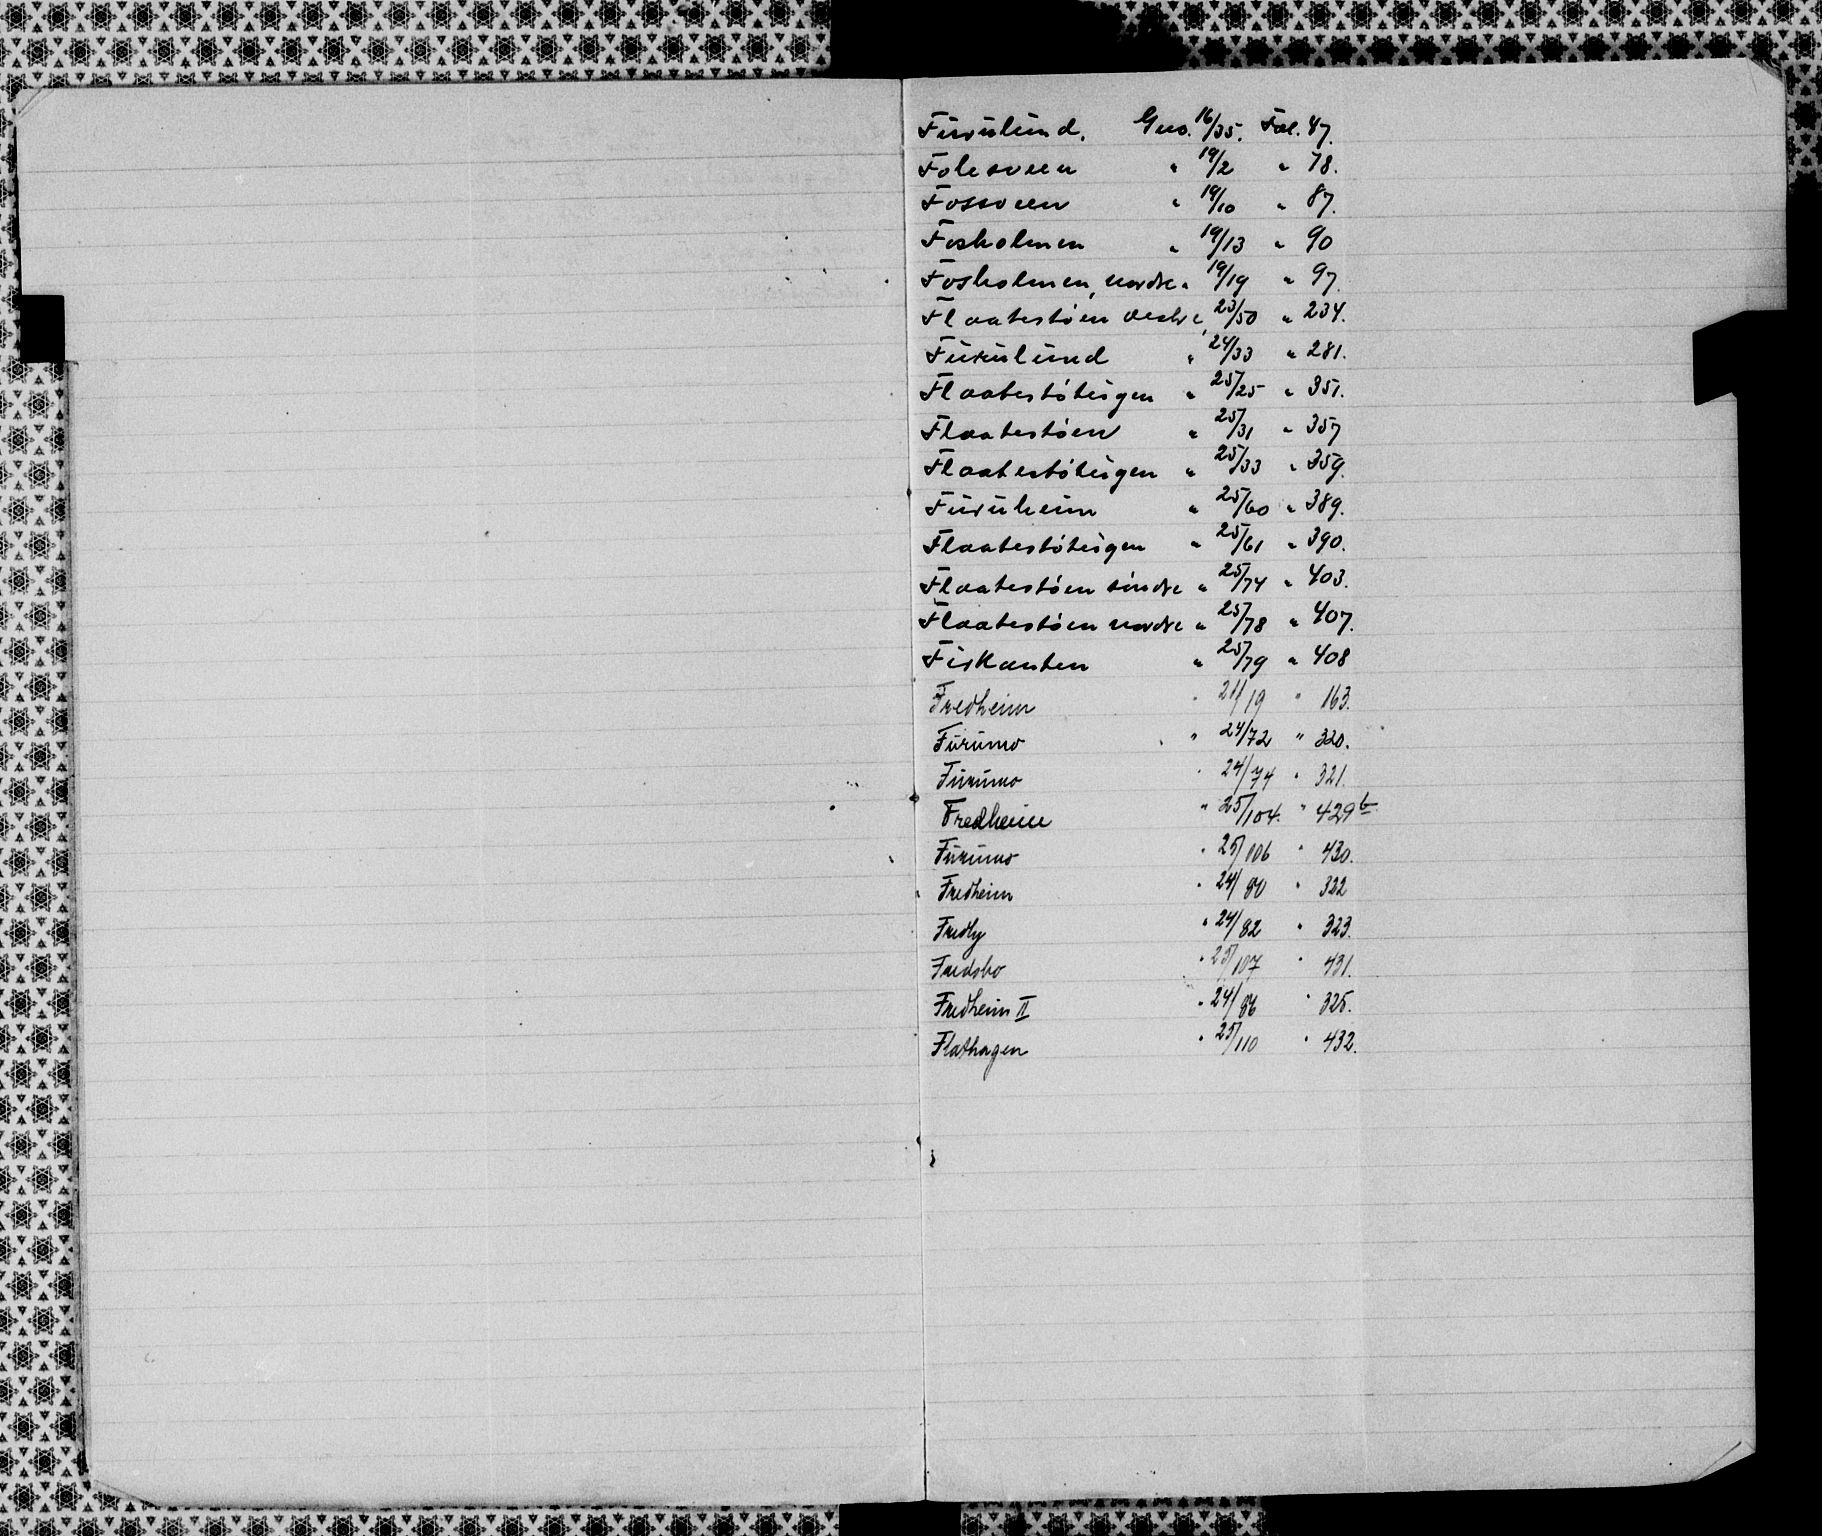 Furulund. Gno. 16/35. Fol. 47.
Folesveen " 19/2 " 78.
Fossveen " 19/10 " 87.
Fosholmen " 19/13 " 90
Fosholmen, nordre " 19/19 " 97.
Flaatestøen vestre, 23/50 " 234.
Furulund " 24/33 " 281.
Flaatestøteigen " 25/25 " 351.
Flaatestøen " 25/31 " 357
Flaatestøteigen " 25/33 " 359.
Furuheim " 25/60 " 389.
Flaatestøteigen " 25/61 " 390.
Flaatestøen søndre " 25/74 " 403.
Flaatestøen nordre " 25/78 " 407.
Fiskanten " 25/79 " 408
Fredheim " 21/19 " 163.
Furumo " 24/72 " 320.
Furumo " 24/74 " 321.
Fredheim " 25/104. " 429b
Furumo " 25/106 " 430.
Fredheim " 24/80 " 322
Fredly " 24/82 " 323.
Fredsbo " 25/107 " 431.
Fredheim II " 24/86 " 325.
Flathagen " 25/110 " 432.